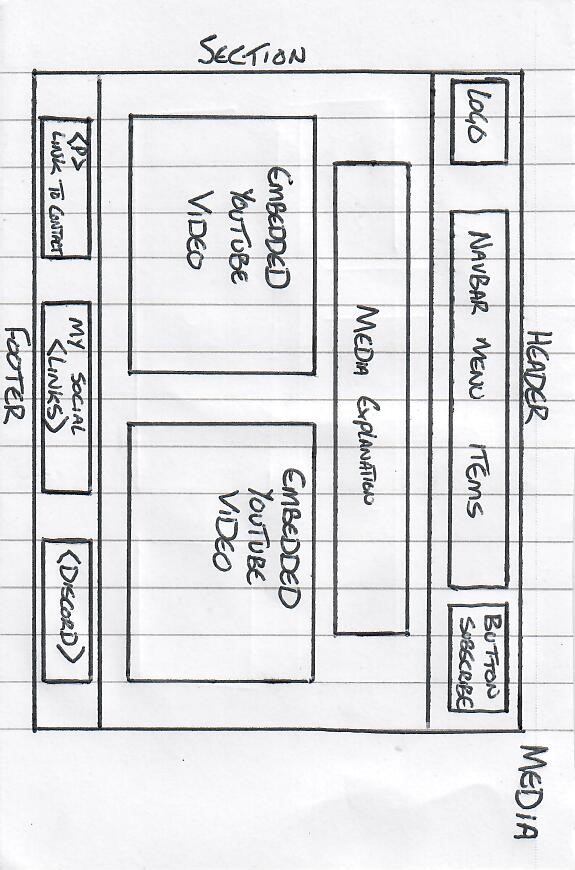 HEADER
MEDIA
LOGO
NAVBAR MENU ITEMS
BUTTON
SUBSCRIBE
MEDIA EXPLANATION
SECTION
EMBEDDED
YOUTUBE
VIDEO
EMBEDDED
YOUTUBE
VIDEO
<P>
LINK TO CONTACT
MY SOCIAL
<LINKS>
<DISCORD>
FOOTER